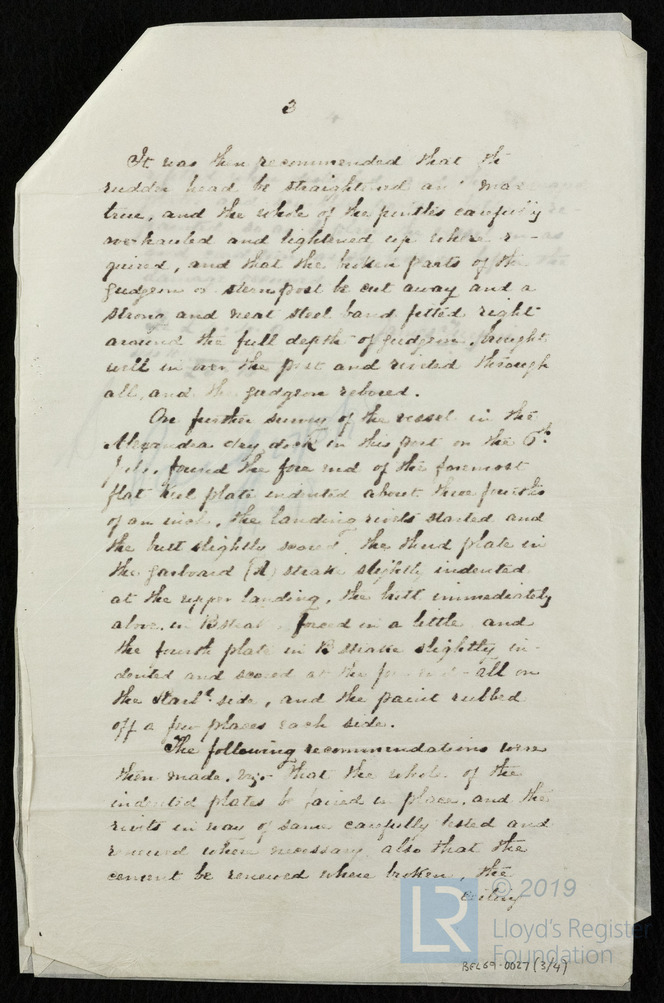 3
It was then recommended that the
rudder head be straightened and made
true, and the whole of the pintles carefully
overhauled and tightened up where re-
quired, and that the broken parts of the
gudgeon on sternpost be cut away and a
strong and neat steel band fitted right
around the full depth of gudgeon, brought
well in over the post and riveted through
all, and the gudgeon rebored.
On further survey of the vessel in the
Alexandra dry dock in this port on the 6th
July, found the fore end of the foremost
flat keel plate indented about three fourths
of an inch, the landing rivets started and
the butt slightly scored, the third plate in
the garboard (A) strake slightly indented
at the upper landing, the butt immediately
above, in B strake, forced in a little and
the fourth plate in B strake slightly in-
dented and scored at the fore end - all on
the Starbd side, and the paint rubbed
off a few places each side.
The following recommendations were
then made, viz:- That the whole of the
indented plates be faired in place, and the
rivets in way of same carefully tested and
renewed where necessary, also that the
cement be renewed where broken, the
ceiling
© 2019
LR
Lloyd's Register
Foundation
BEL69-0027 (3/4)